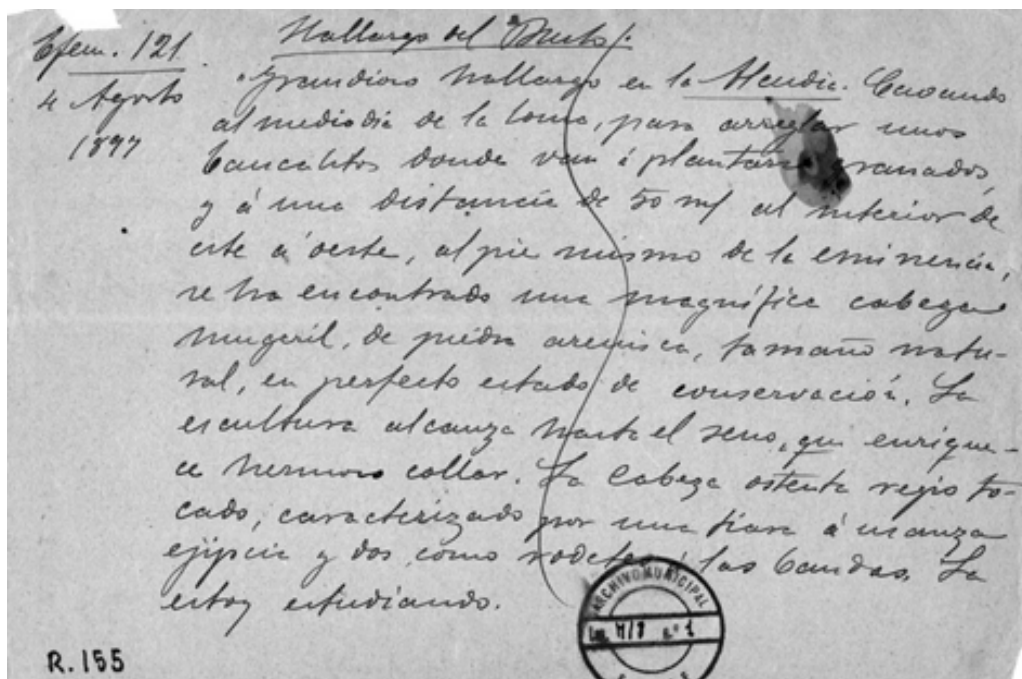 Efem. 121
4 Agosto
1897
Hallazgo del Busto.
Grandioso hallazgo en la Alcudia. Cavando
al mediodia de la loma, para arreglar unos
bancalitos donde van á plantarse granados,
y á una distancia de 50 m/ al interior de
este á oeste, al pie mismo de la eminencia,
se ha encontrado una magnífica cabeza
mugeril, de piedra arenisca, tamaño natu-
ral, en perfecto estado de conservación. La
escultura alcanza hasta el seno, que enrique-
ce hermoso collar. La cabeza ostenta regio to-
cado, caracterizado por una tiara á usanza
ejipcia y dos como rodetes á las bandas. La
estoy estudiando.
ARCHIVO MUNICIPAL
R.155